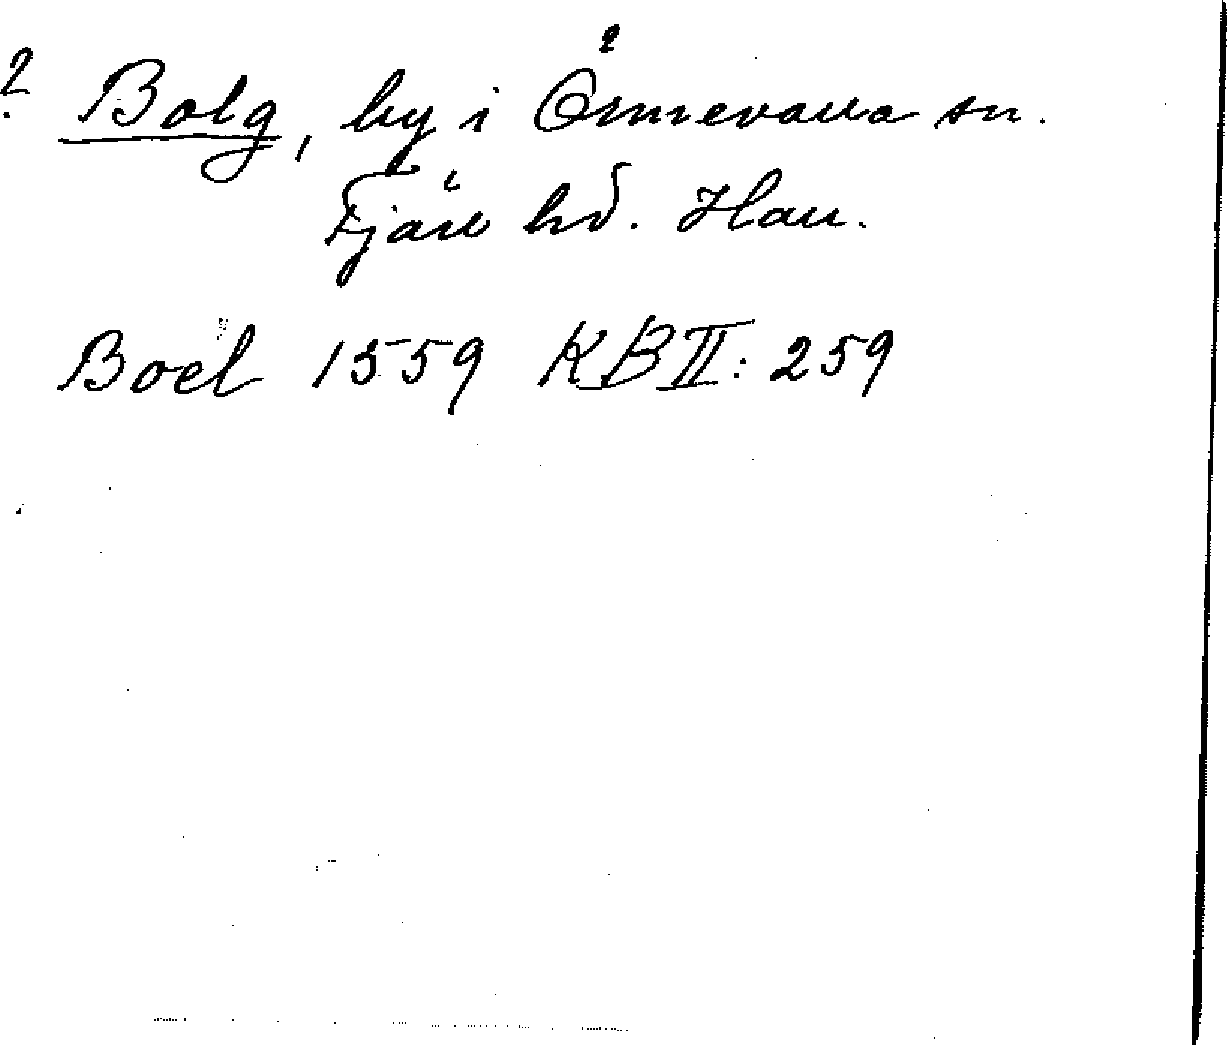 ? Bolg, by i Önnevalla sn.
Fjäre hd. Hall.
Boel 1559 KB II: 259